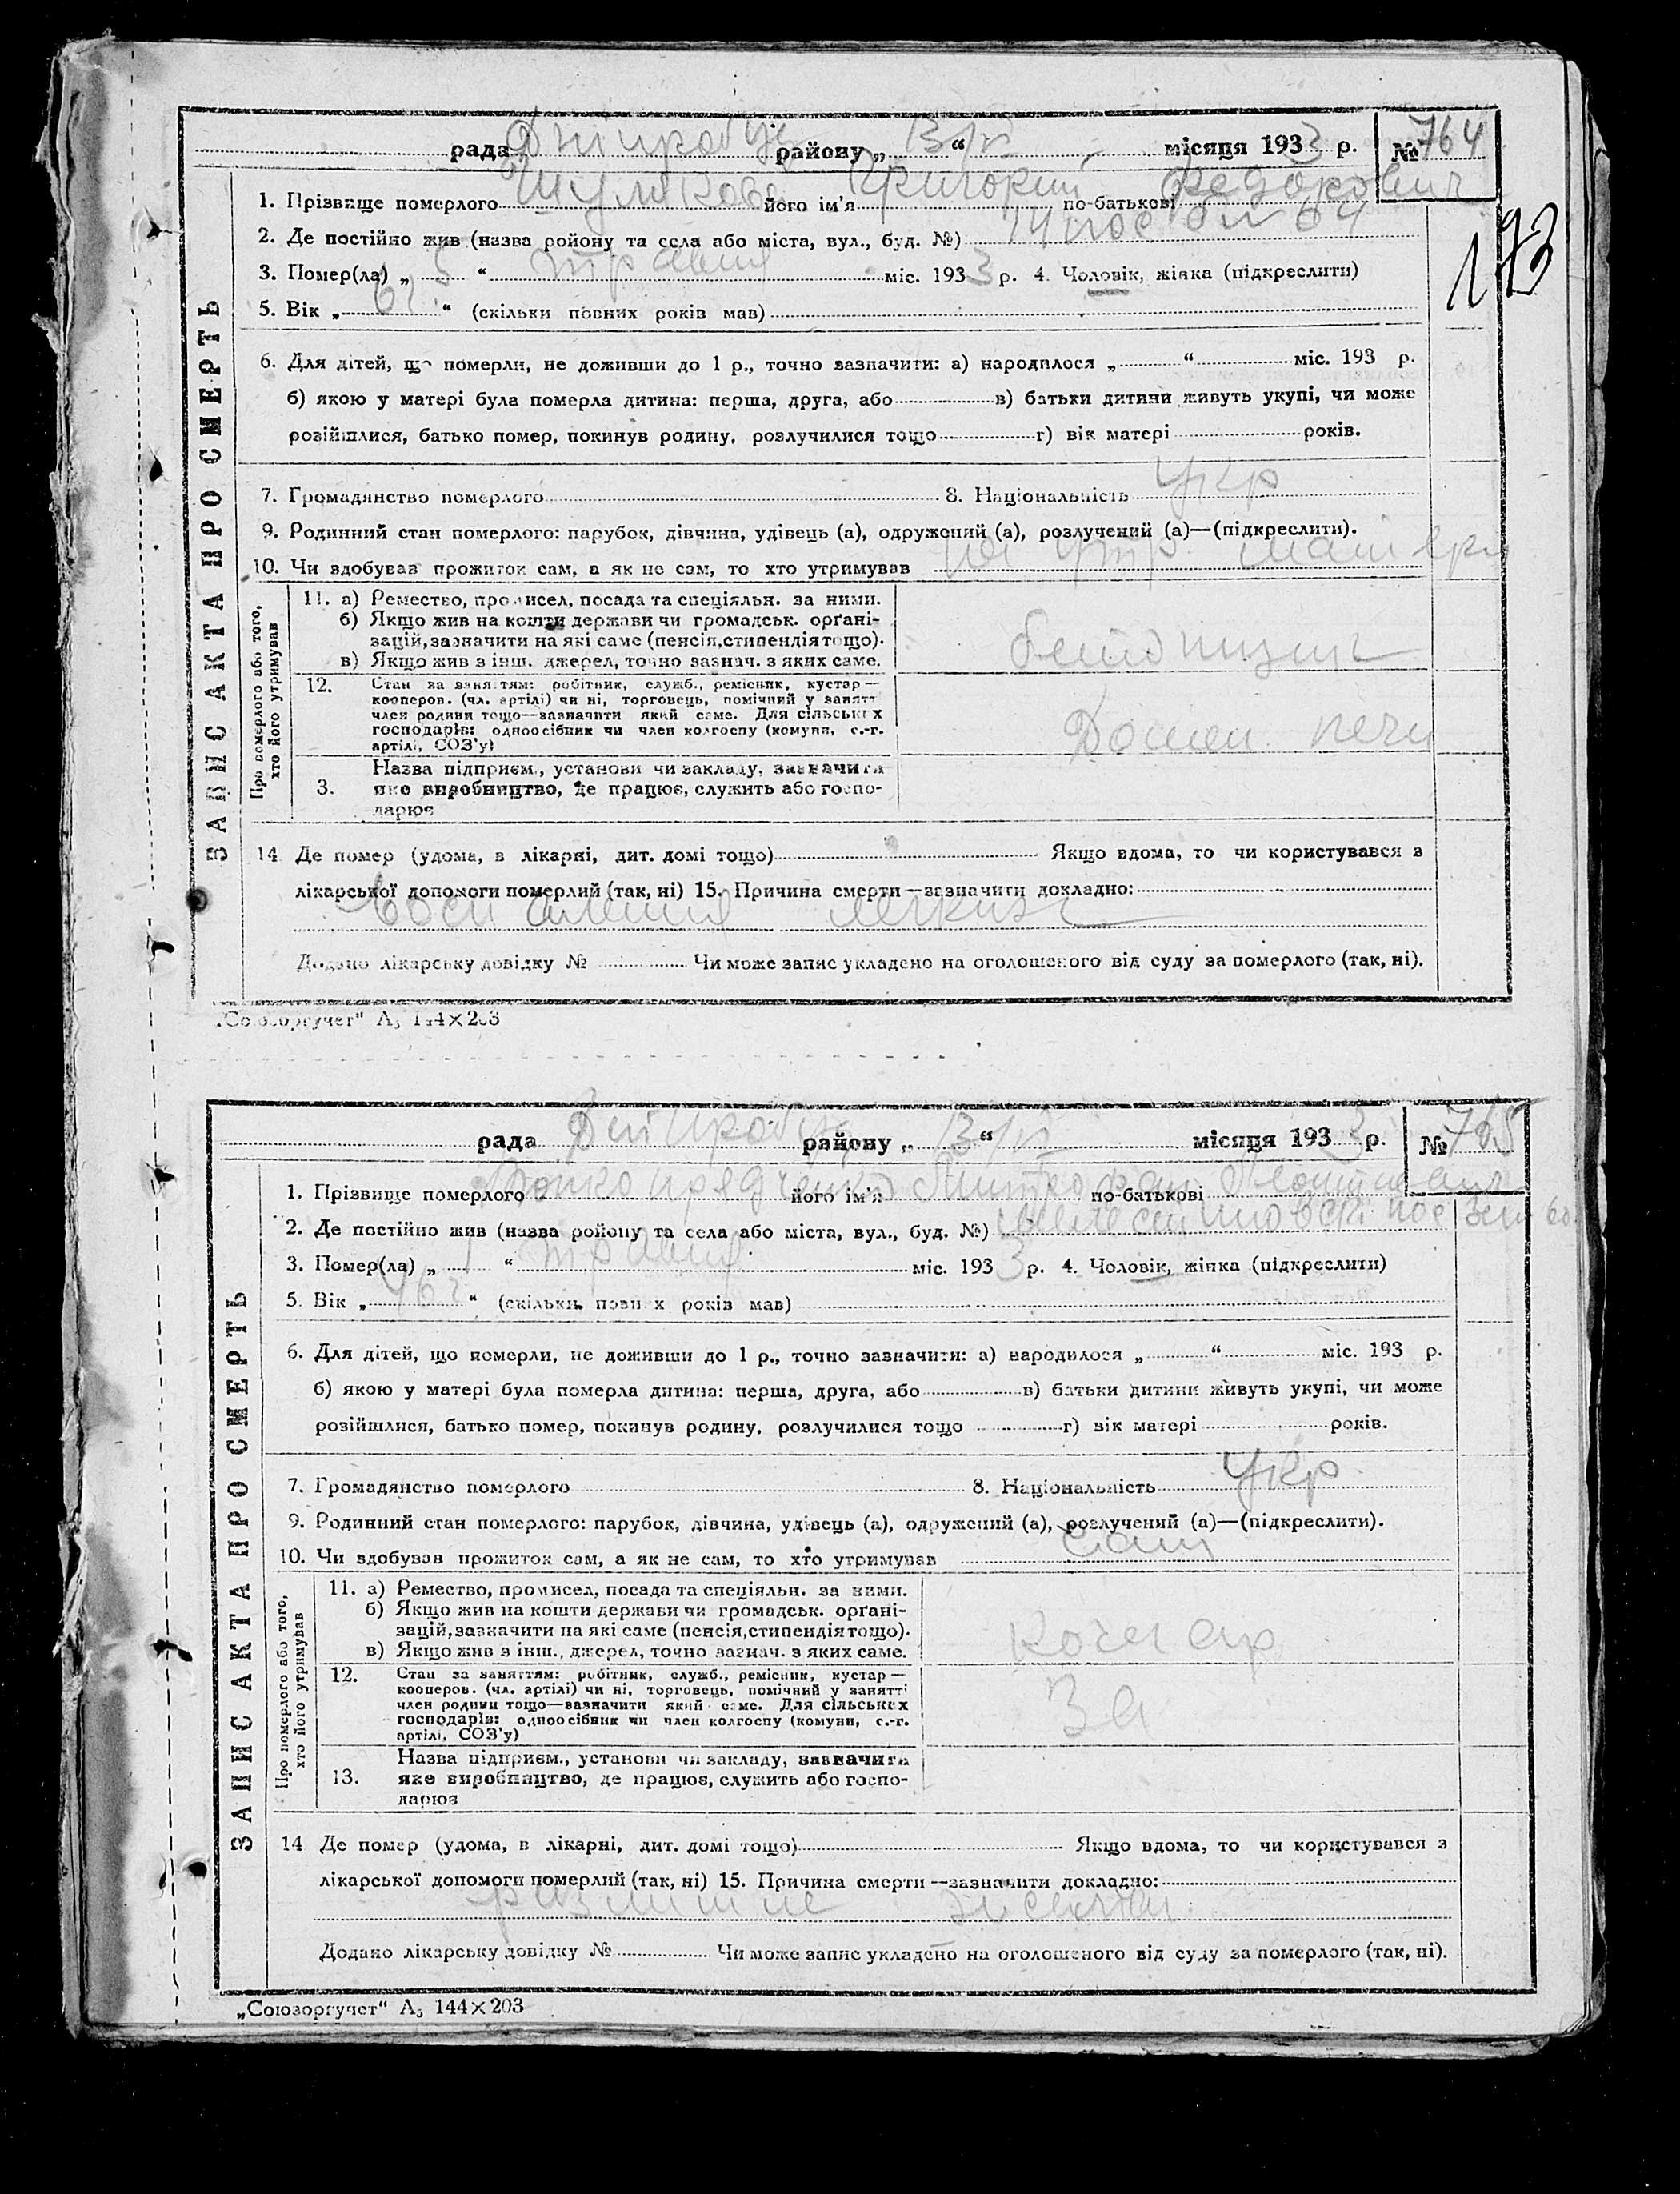 рада Дніпробуд району „ 13/VI “ місяця 1933 р. № 764
1. Прізвище померлого його ім'я Григорий по-батькові Федорович
173
2. Де постійно жив (назва ройону та села або міста, вул., буд. №) 14 пос 64
3. Помер(ла) „ 5 “ травня міс. 1933 р. 4. Чоловік, жінка (підкреслити)
5. Вік „ “ (скільки повних років мав)
6. Для дітей, що померли, не доживши до 1 р., точно зазначити: а) народилося „ “ міс. 193 р.
б) якою у матері була померла дитина: перша, друга, або в) батьки дитини живуть укупі, чи може
розійшлися, батько помер, покинув родину, розлучилися тощо г) вік матері років.
7. Громадянство померлого 8. Національність Укр
9. Родинний стан померлого: парубок, дівчина, удівець (а), одружений (а), розлучений (а)—(підкреслити).
10. Чи здобував прожиток сам, а як не сам, то хто утримував на утр. матери
ЗАПИС АКТА ПРО СМЕРТЬ
Про померлого або того, хто його утримував
11. а) Ремество, промисел, посада та спеціяльн. за ними.
б) Якщо жив на кошти держави чи громадськ. орґані-
зацій, зазначити на які саме (пенсія, стипендія тощо).
в) Якщо жив з інш. джерел, точно зазнач. з яких саме.
12. Стан за заняттям: робітник, служб., ремісник, кустар—
кооперов. (чл. артілі) чи ні, торговець, помічний у занятт
член родини тощо—зазначити який саме. Для сільських
господарів: одноосібник чи член колгоспу (комуни, с.-г.
артілі, СОЗ'у)
Домен печи
Назва підприєм., установи чи закладу, зазначити
3. яке виробництво, де працює, служить або госпо-
дарює
14 Де помер (удома, в лікарні, дит. домі тощо) Якщо вдома, то чи користувався з
лікарської допомоги померлий (так, ні) 15. Причина смерти—зазначити докладно:
Воспаления легких
Додано лікарську довідку № Чи може запис укладено на оголошеного від суду за померлого (так, ні).
„Союзоргучет“ А₅ 144×203
рада Дніпробуд району „ 13/VI “ місяця 1933 р. № 765
1. Прізвище померлого його ім'я по-батькові
2. Де постійно жив (назва ройону та села або міста, вул., буд. №) пос зем
3. Помер(ла) „ “ травня міс. 1933 р. 4. Чоловік, жінка (підкреслити)
5. Вік „ 46 г “ (скільки повних років мав)
6. Для дітей, що померли, не доживши до 1 р., точно зазначити: а) народилося „ “ міс. 193 р.
б) якою у матері була померла дитина: перша, друга, або в) батьки дитини живуть укупі, чи може
розійшлися, батько помер, покинув родину, розлучилися тощо г) вік матері років.
7. Громадянство померлого 8. Національність Укр
9. Родинний стан померлого: парубок, дівчина, удівець (а), одружений (а), розлучений (а)—(підкреслити).
10. Чи здобував прожиток сам, а як не сам, то хто утримував сам
ЗАПИС АКТА ПРО СМЕРТЬ
Про померлого або того, хто його утримував
11. а) Ремество, промисел, посада та спеціяльн. за ними.
б) Якщо жив на кошти держави чи громадськ. орґані-
зацій, зазначити на які саме (пенсія, стипендія тощо).
в) Якщо жив з інш., джерел, точно зазнач. з яких саме.
Кочегар
12. Стан за заняттям: робітник, служб., ремісник, кустар—
кооперов. (чл. артілі) чи ні, торговець, помічний у занятті
член родини тощо—зазначити який саме. Для сільських
господарів: одноосібник чи член колгоспу (комуни, с.-г.
артілі, СОЗ'у)
Назва підприєм., установи чи закладу, зазначити
13. яке виробництво, де працює, служить або госпо-
дарює
14 Де помер (удома, в лікарні, дит. домі тощо) Якщо вдома, то чи користувався з
лікарської допомоги померлий (так, ні) 15. Причина смерти—зазначити докладно:
Додано лікарську довідку № Чи може запис укладено на оголошеного від суду за померлого (так, ні).
„Союзоргучет“ А₅ 144×203